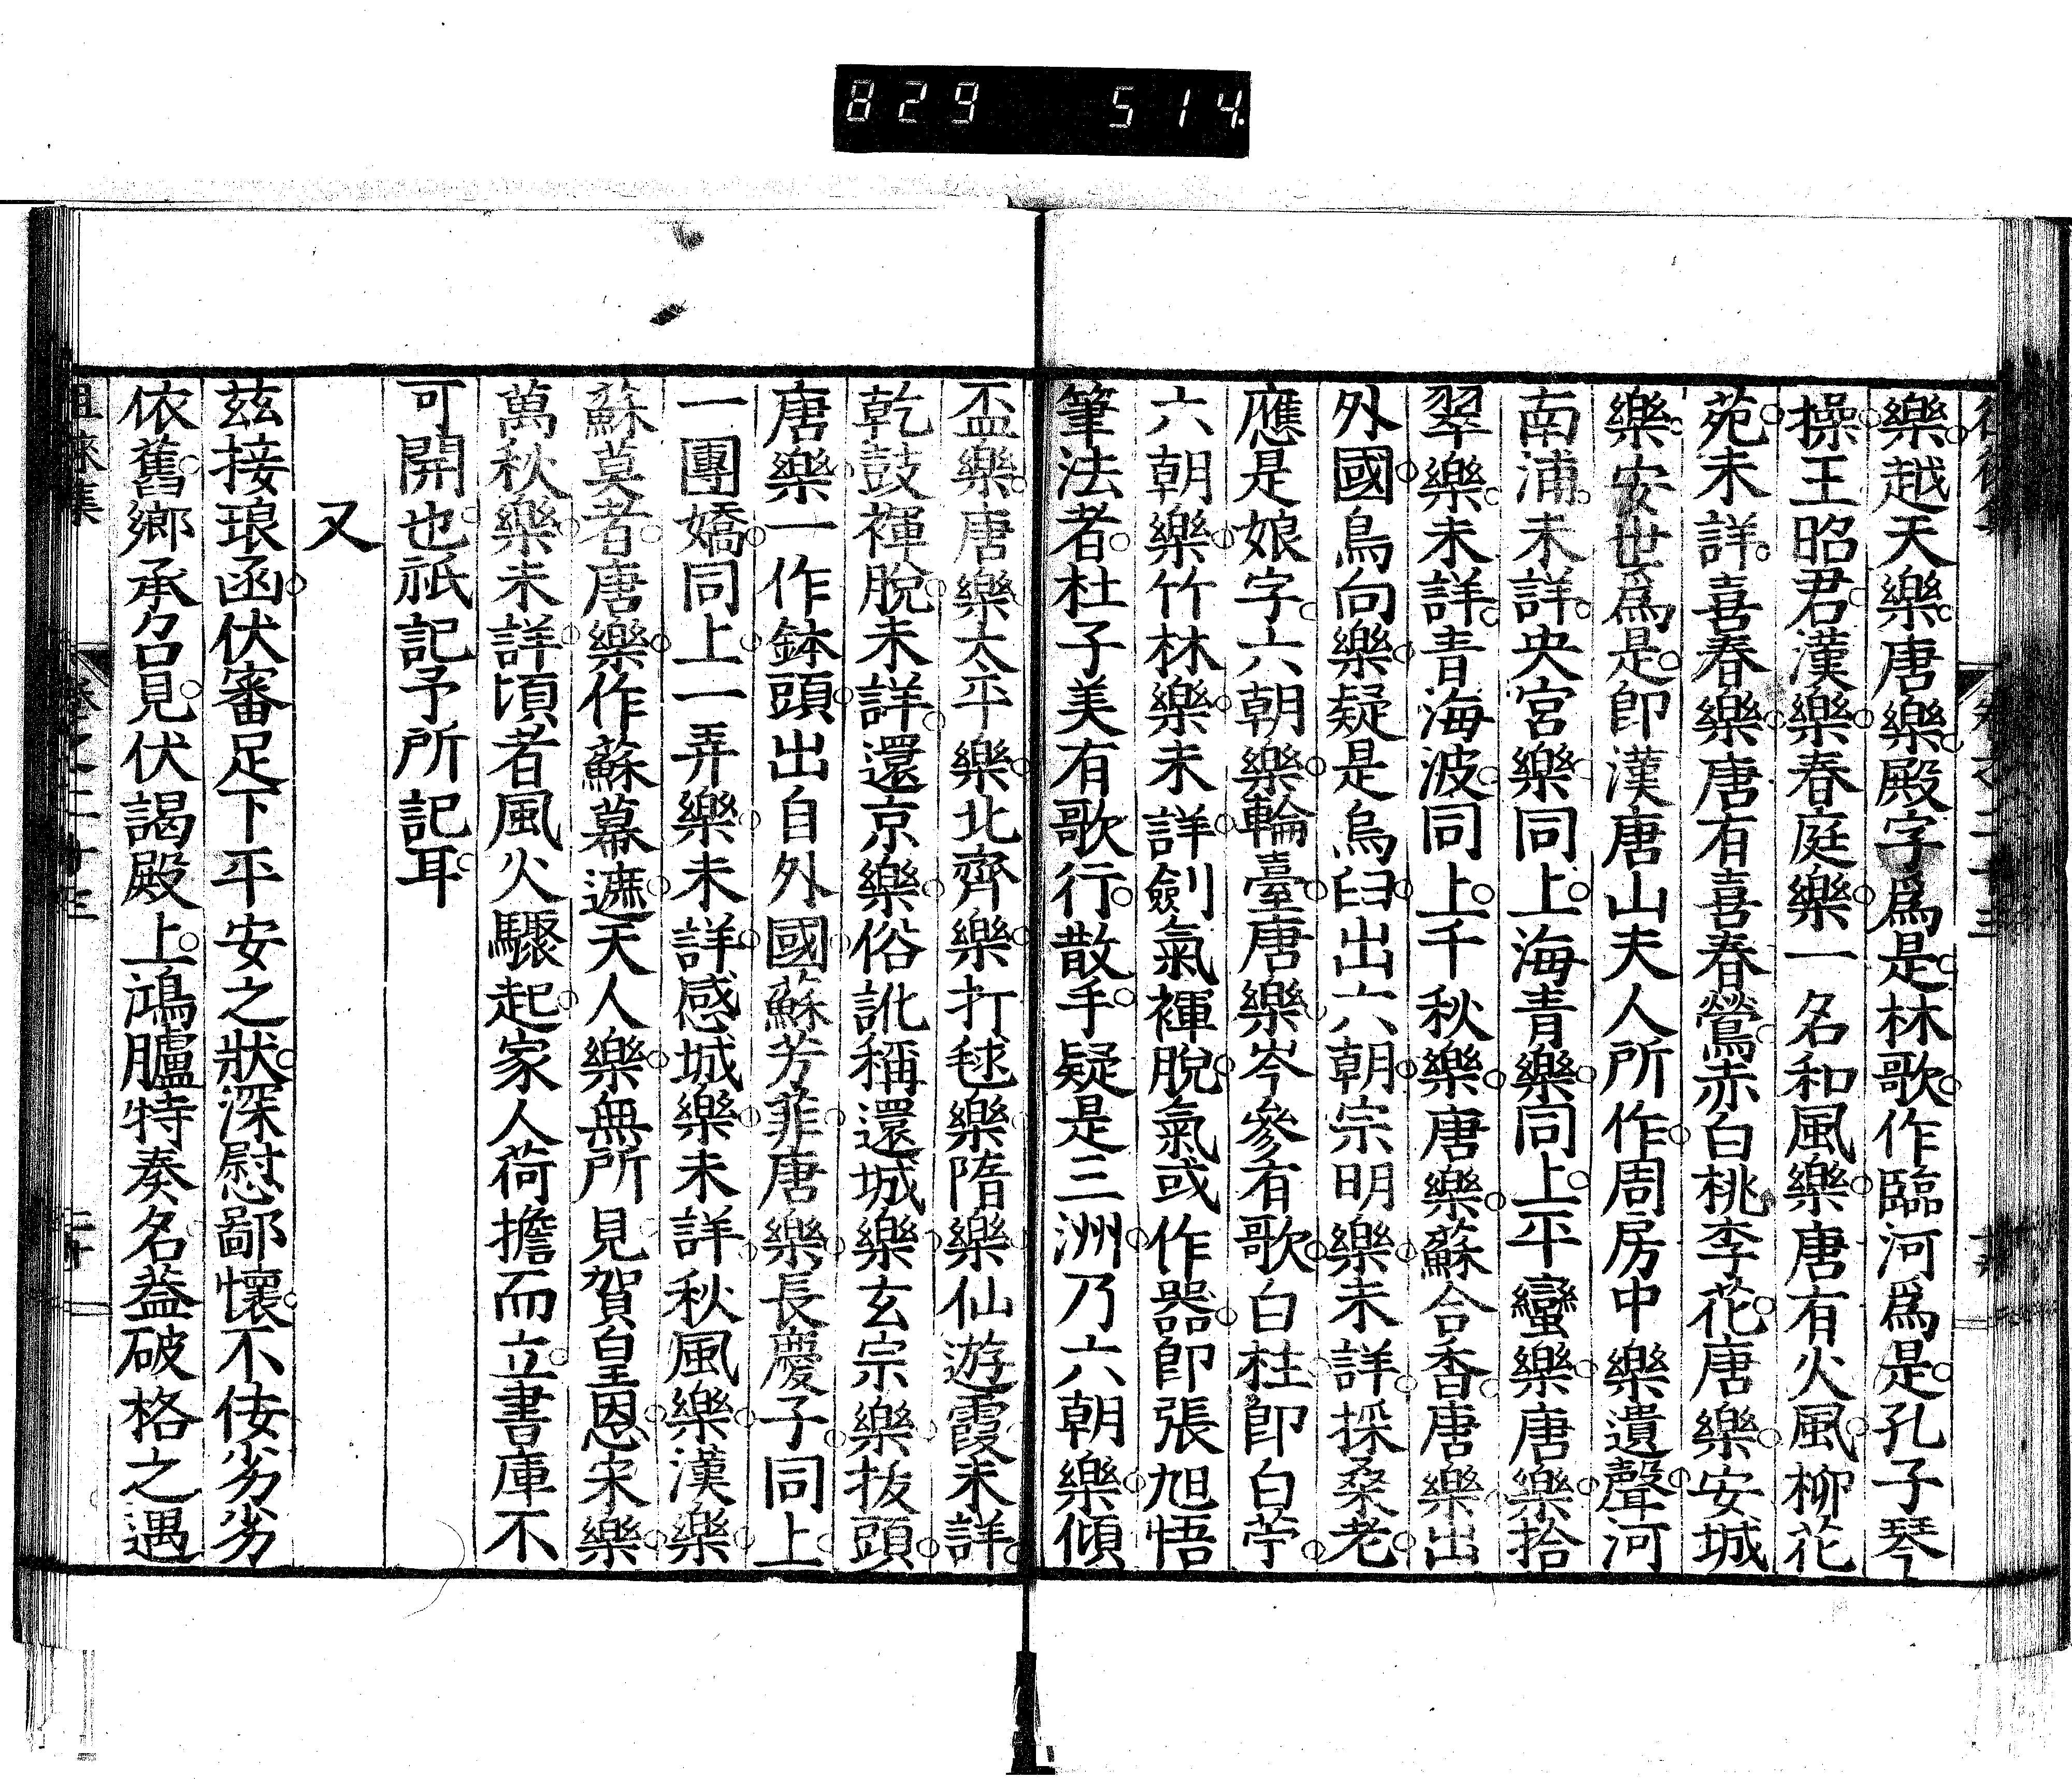 829 514
樂越天樂唐樂殿字爲是林歌作臨河爲是孔子琴
操王昭君漢樂春庭樂一名和風樂唐有火風柳花
苑未詳喜春樂唐有喜春鶯赤白桃李花唐樂安城
樂安世爲是卽漢唐山夫人所作周房中樂遺聲河
南浦未詳央宮樂同上海青樂同上平蠻樂唐樂拾
翠樂未詳青海波同上千秋樂唐樂蘇合香唐樂出
外國鳥向樂疑是烏臼出六朝宗明樂未詳採桑老
應是娘字六朝樂輪臺唐樂岑參有歌白柱卽白苧
六朝樂竹林樂未詳劍氣褌脫氣或作器卽張旭悟
筆法者杜子美有歌行散手疑是三洲乃六朝樂傾
盃樂唐樂太平樂北齊樂打毬樂隋樂仙遊霞未詳
乾鼓褌脫未詳還京樂俗訛稱還城樂玄宗樂拔頭
唐樂一作鉢頭出自外國蘇芳菲唐樂長慶子同上
一團嬌同上一弄樂未詳感城樂未詳秋風樂漢樂
蘇莫者唐樂作蘇幕遮天人樂無所見賀皇恩宋樂
萬秋樂未詳頃者風火驟起家人荷擔而立書庫不
可開也祇記予所記耳
又
茲接琅函伏審足下平安之狀深慰鄙懷不佞劣劣
依舊鄉承召見伏謁殿上鴻臚特奏名益破格之遇